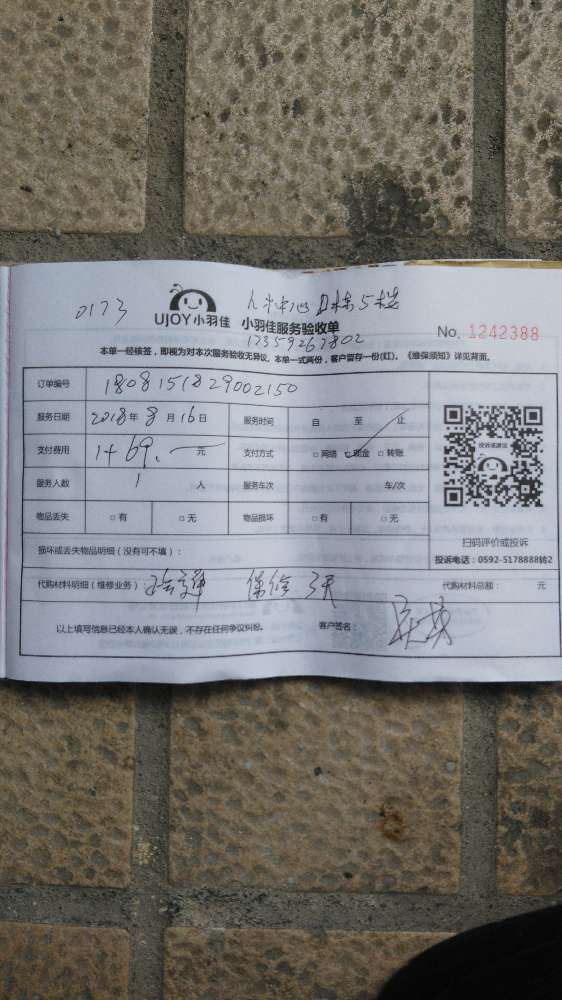 0173 人才中心D栋5楼
UJOY小羽佳 小羽佳服务验收单
17359267802
No. 1242388
本单一经核签，即视为对本次服务验收无异议。本单一式两份，客户留存一份(红)。《维保须知》详见背面。
订单编号 1808151829002150
服务日期 2018年8月16日 服务时间 自 至 止
支付费用 1+69.一 元 支付方式 □网络 □现金 □转账
服务人数 1 人 服务车次 车/次
物品丢失 □有 □无 物品损坏 □有 □无
投诉或建议
扫码评价或投诉
投诉电话：0592-5178888转2
损坏或丢失物品明细（没有可不填）：
代购材料明细（维修业务）： 保修 3天 代购材料总额： 元
以上填写信息已经本人确认无误，不存在任何争议纠纷。 客户签名：